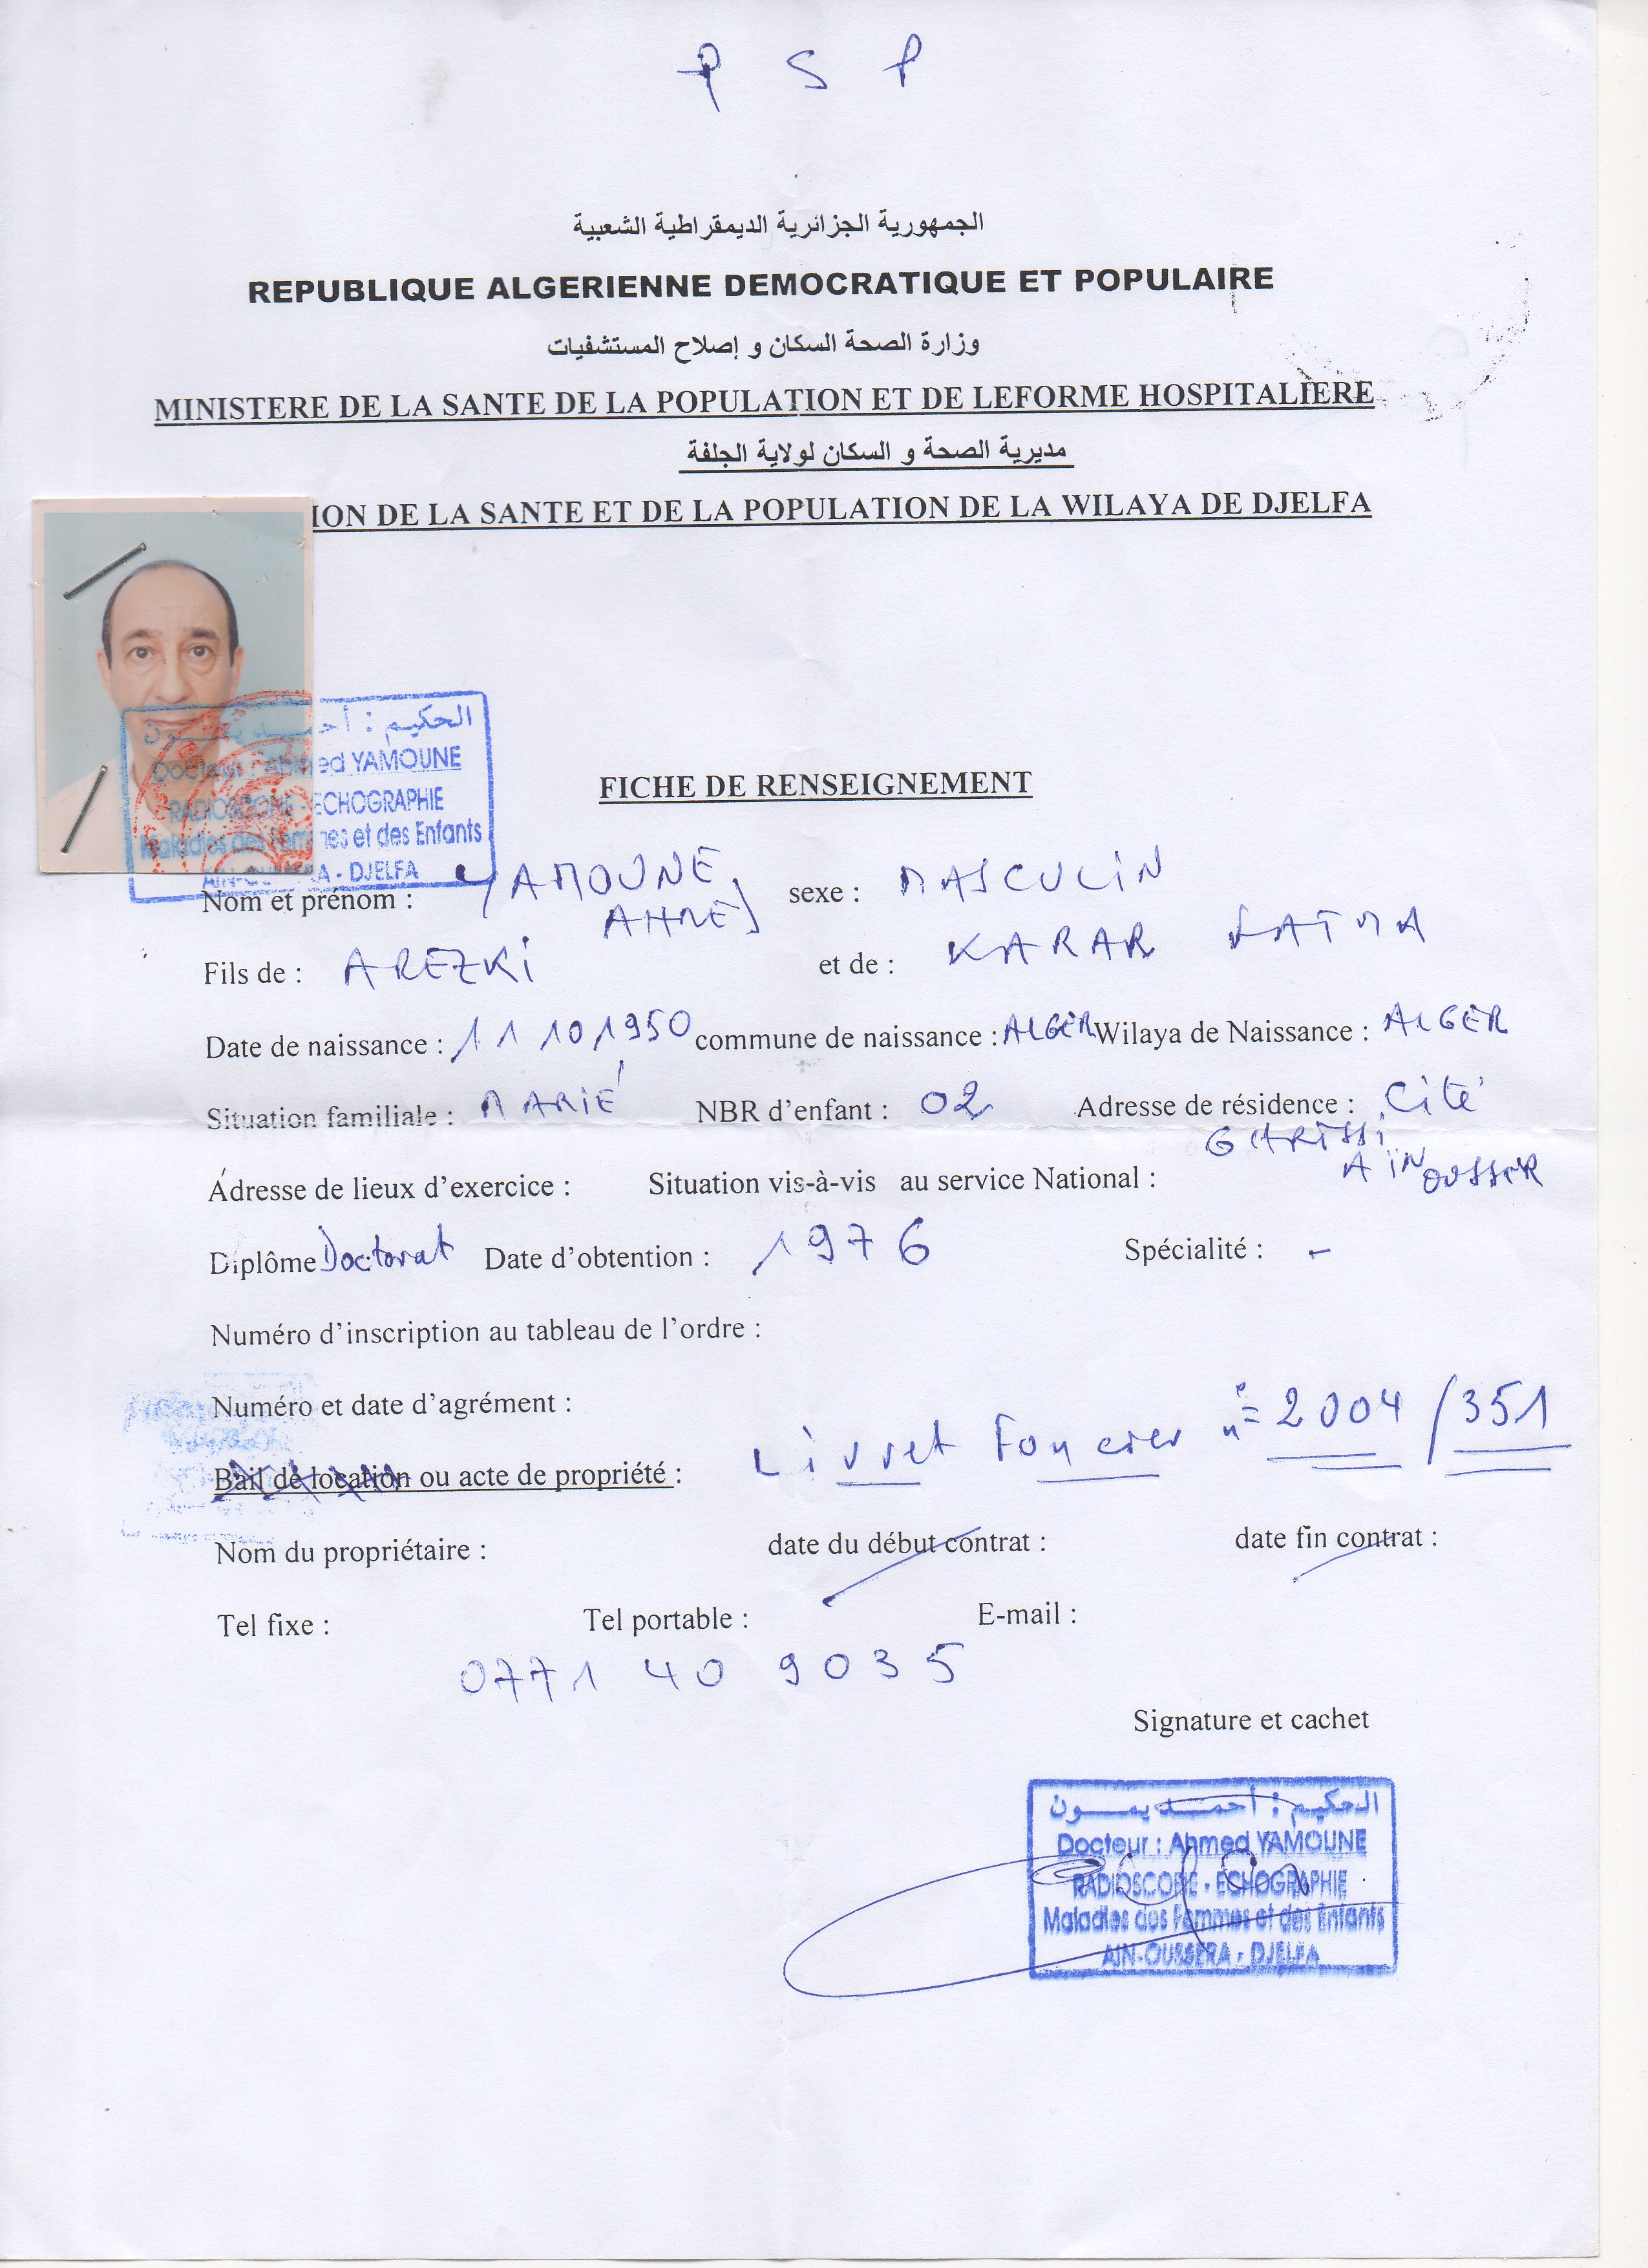 P S P
الجمهورية الجزائرية الديمقراطية الشعبية
REPUBLIQUE ALGERIENNE DEMOCRATIQUE ET POPULAIRE
وزارة الصحة السكان و إصلاح المستشفيات
MINISTERE DE LA SANTE DE LA POPULATION ET DE LEFORME HOSPITALIERE
مديرية الصحة و السكان لولاية الجلفة
ION DE LA SANTE ET DE LA POPULATION DE LA WILAYA DE DJELFA
الحكيم : أحمد يمون
Docteur : Ahmed YAMOUNE
RADIOSCOPIE - ECHOGRAPHIE
Maladies des Femmes et des Enfants
AIN-OUSSERA - DJELFA
FICHE DE RENSEIGNEMENT
Nom et prénom : YAMOUNE AHMED sexe : MASCULIN
Fils de : AREZKI et de : KARAR FATMA
Date de naissance : 11 10 1950 commune de naissance : ALGER Wilaya de Naissance : ALGER
Situation familiale : MARIÉ NBR d'enfant : 02 Adresse de résidence : Cité
AIN OUSSER
Adresse de lieux d'exercice : Situation vis-à-vis au service National :
Diplôme Doctorat Date d'obtention : 1976 Spécialité : -
Numéro d'inscription au tableau de l'ordre :
Numéro et date d'agrément :
Bail de location ou acte de propriété : Livret Foncier n° 2004 / 351
Nom du propriétaire : date du début contrat : date fin contrat :
Tel fixe : Tel portable : E-mail :
0771 40 9035
Signature et cachet
الحكيم : أحمد يمون
Docteur : Ahmed YAMOUNE
RADIOSCOPIE - ECHOGRAPHIE
Maladies des Femmes et des Enfants
AIN-OUSSERA - DJELFA